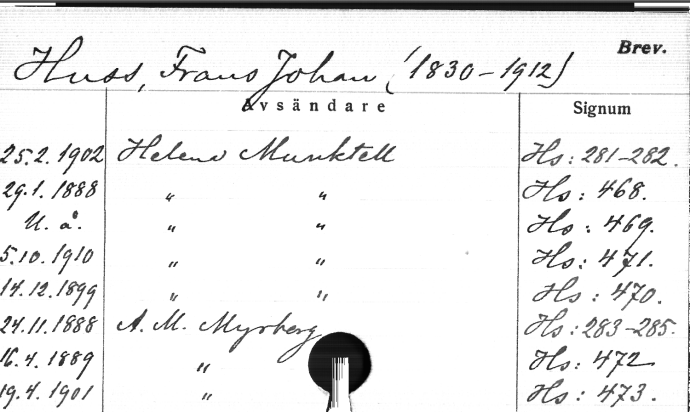 Brev.
Huss, Frans Johan (1830-1912)
Avsändare Signum
25.2.1902 Helena Munktell Hs: 281-282.
29.1.1888 " " Hs: 468.
U. å. " " Hs: 469.
5.10.1910 " " Hs: 471.
14.12.1899 " " Hs: 470.
24.11.1888 A. M. Myrberg Hs: 283-285.
16.4.1889 " Hs: 472
19.4.1901 " Hs: 473.